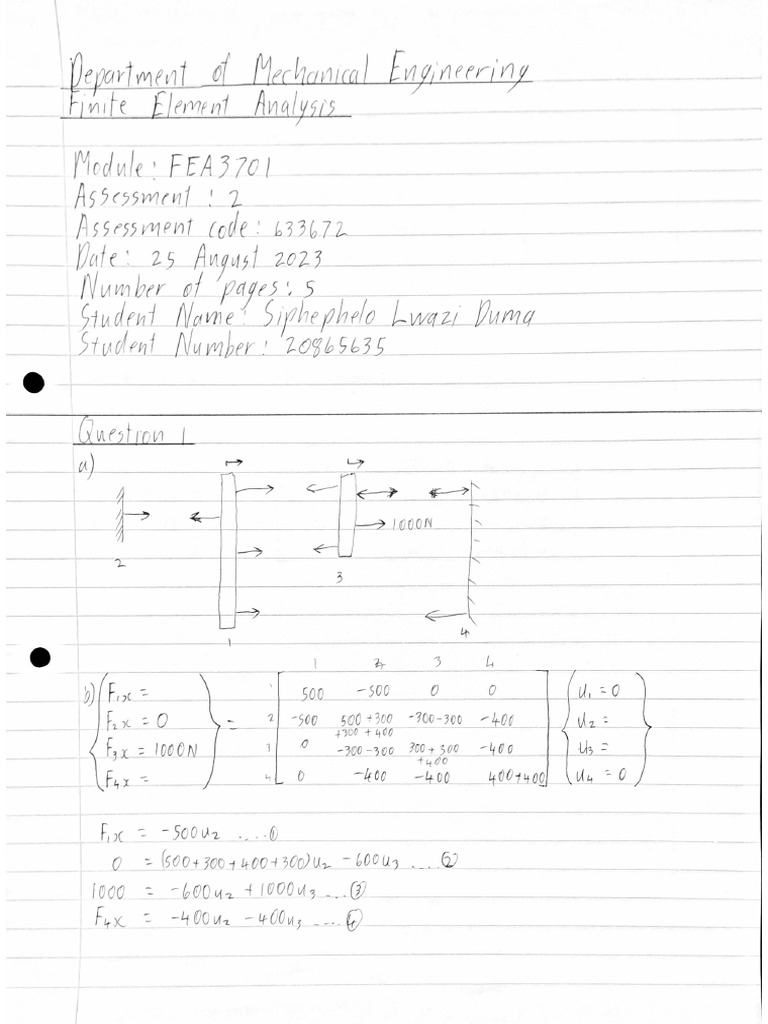 Department of Mechanical Engineering
Finite Element Analysis
Module: FEA3701
Assessment : 2
Assessment code: 633672
Date: 25 August 2023
Number of pages: 5
Student Name: Siphephelo Lwazi Duma
Student Number: 20865635
Question 1
a)
1000N
2
3
1
4
1 2 3 4
b) F1x = 1 500 -500 0 0 U1 = 0
F2x = 0 = 2 -500 500+300 -300-300 -400 U2 =
+300 + 400
F3x = 1000N 3 0 -300-300 300+300 -400 U3 =
+400
F4x = 4 0 -400 -400 400+400 U4 = 0
F1x = -500u2 .... ①
0 = (500+300+400+300)u2 - 600u3 ... ②
1000 = -600u2 + 1000u3 ... ③
F4x = -400u2 - 400u3 .... ④